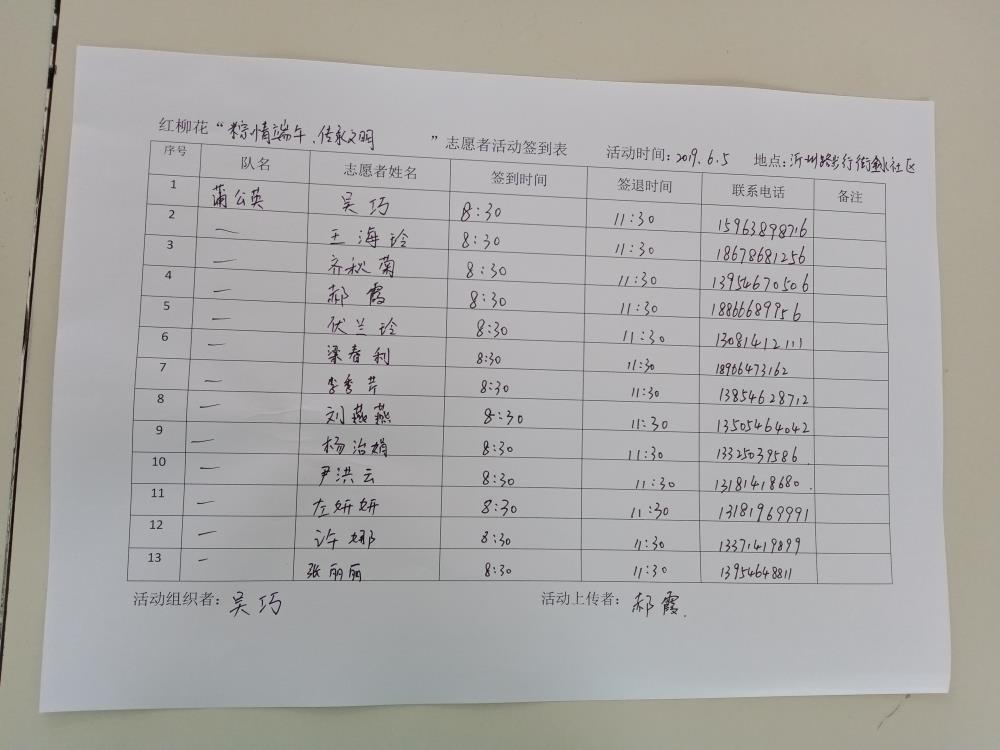 红柳花“粽情端午、传承文明”志愿者活动签到表 活动时间:2019.6.5 地点:沂州路步行街社区
序号 队名 志愿者姓名 签到时间 签退时间 联系电话 备注
1 蒲公英 吴巧 8:30 11:30 15963898716
2 — 王海玲 8:30 11:30 18678681256
3 — 齐秋菊 8:30 11:30 13954670506
4 — 郝霞 8:30 11:30 18866689956
5 — 伏兰玲 8:30 11:30 13081412111
6 — 梁春利 8:30 11:30 18906473162
7 — 李秀芹 8:30 11:30 13854628712
8 — 刘燕燕 8:30 11:30 13505464042
9 — 杨治娟 8:30 11:30 13325039586
10 — 尹洪云 8:30 11:30 13181418680.
11 — 左妍妍 8:30 11:30 13181969991
12 — 许娜 8:30 11:30 13371419899
13 — 张丽丽 8:30 11:30 13954648811
活动组织者:吴巧 活动上传者:郝霞.